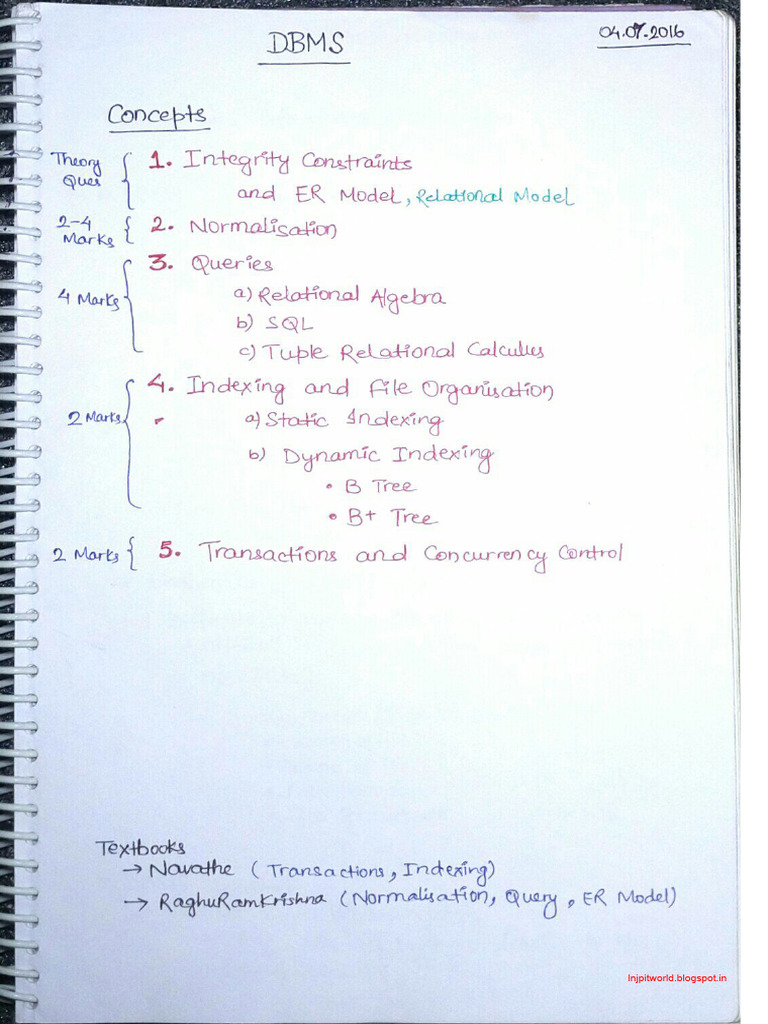 DBMS
04.07.2016
Concepts
Theory Ques
1. Integrity Constraints
and ER Model, Relational Model
2-4 Marks
2. Normalisation
3. Queries
4 Marks
a) Relational Algebra
b) SQL
c) Tuple Relational Calculus
4. Indexing and File Organisation
2 Marks
a) Static Indexing
b) Dynamic Indexing
• B Tree
• B+ Tree
2 Marks
5. Transactions and Concurrency Control
Textbooks
→ Navathe (Transactions, Indexing)
→ RaghuRamKrishna (Normalisation, Query, ER Model)
Injpitworld.blogspot.in